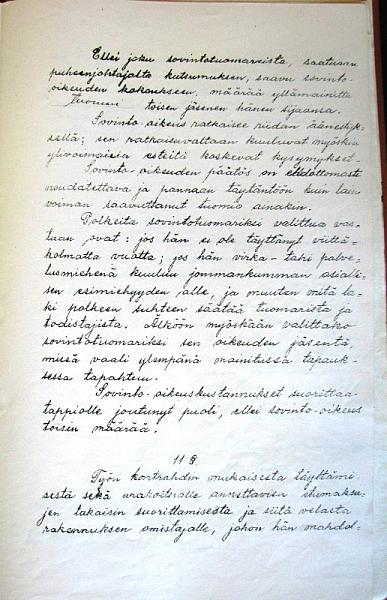 Ellei joku sovintotuomareista, saatuaan
puheenjohtajalta kutsumuksen, saavu sovinto-
oikeuden kokoukseen, määrää yllämainittu
Tuomari toisen jäsenen hänen sijaansa.
Sovinto-oikeus ratkaisee riidan äänestyk-
sellä; sen ratkaisuvaltaan kuuluvat myöskin
ylivoimaisia esteitä koskevat kysymykset.
Sovinto-oikeuden päätös on ehdottomasti
noudatettava ja pannaan täytäntöön kuin lain-
voiman saavuttanut tuomio ainakin.
Polkeita sovintotuomariksi valittua vas-
taan ovat: jos hän ei ole täyttänyt viittä-
kolmatta vuotta; jos hän virka- tahi palve-
lusmiehenä kuuluu jommankumman asialli-
sen esimiehyyden alle, ja muuten mitä la-
ki polkeen suhteen säätää tuomarista ja
todistajista. Älköön myöskään valittako
sovintotuomariksi sen oikeuden jäsentä,
missä vaali ylempänä mainitussa tapauk-
sessa tapahtuu.
Sovinto-oikeuskustannukset suorittaa
tappiolle joutunut puoli, ellei sovinto-oikeus
toisin määrää.
11 §.
Työn kontrahdin mukaisesta täyttämi-
sestä sekä urakoitsialle annettavien etumaksu-
jen takaisin suorittamisesta ja siitä velasta
rakennuksen omistajalle, johon hän mahdol-